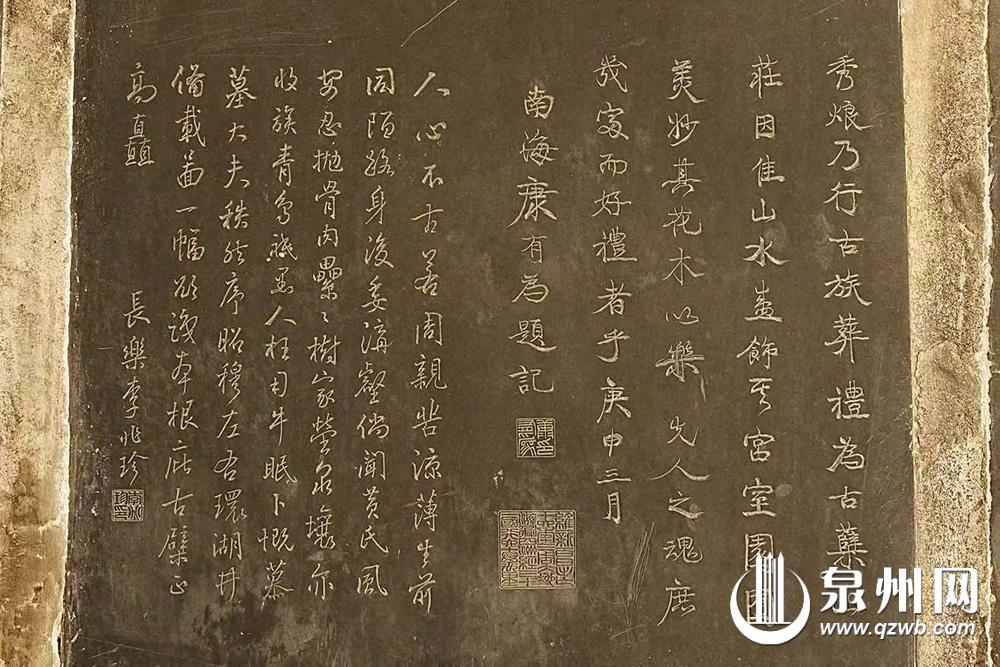 秀烺乃行古族葬禮為古蘗
莊因佳山水益飾其宮室園
美妙其花木以樂先人之魂庶
幾富而好禮者乎庚申三月
南海康有為題記
人心不古若周親皆涼薄生前
同陌路身後委溝壑倘聞黃氏風
安忍拋骨肉纍々樹家塋泉壤亦
收族青烏祗惑人枉自牛眠卜慨慕
墓大夫秩然序昭穆左右環湖井
備載圖一幅欲識本根庇古檗正
高矗 長樂李兆珍
泉州网
www.qzwb.com